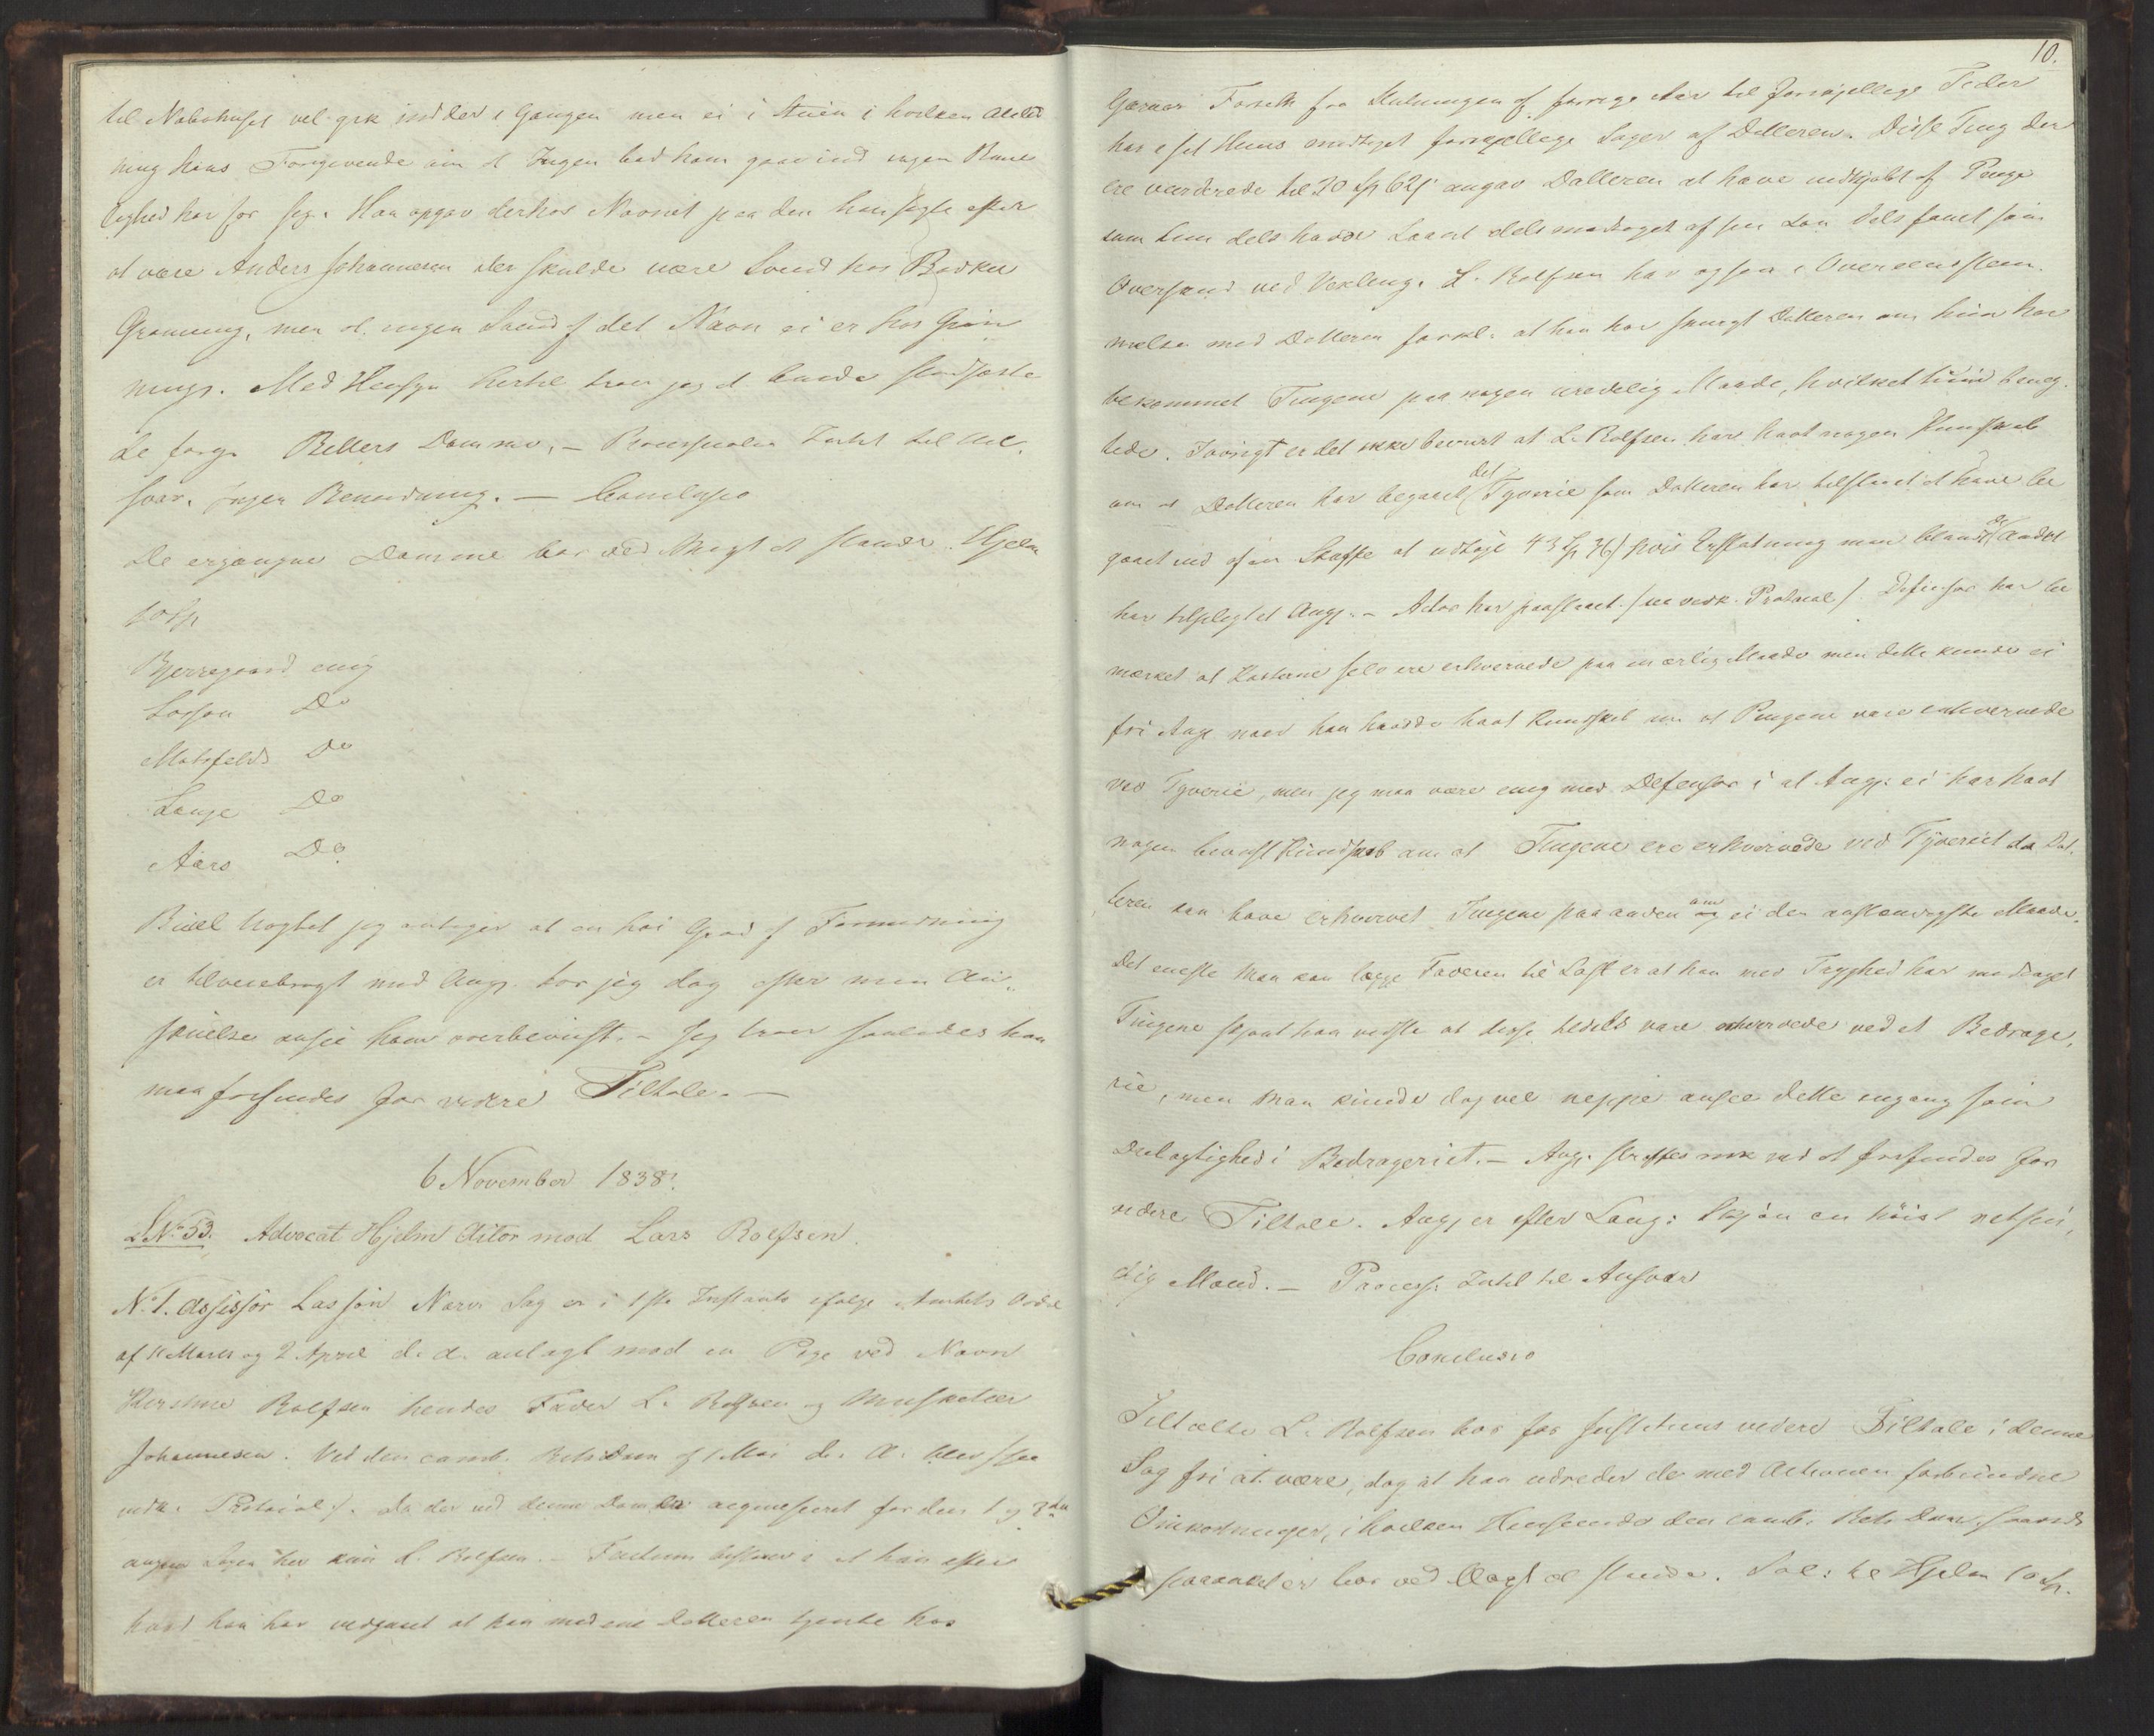 til Nabohuset vel gik ind der i Gangen men ei i Stuen i hvilken Anled
ning hans Foregivende om at Ingen bad ham gaae ind ingen Rime
lighed har for sig. Han opgav derhos Navnet paa den han søgte efter
at være Anders Johannesen der skulde være Svend hos Bødker
Grønning, men at ingen Svend af det Navn ei er hos Grøn
nings. Med Hensyn hertil troer jeg at burde stadfæste
de forge Retters Domme. – Processualia Intet til An
svar. Ingen Bemærkning. – Conclusio
De ergangne Domme bør ved Magt at stande. Hjelm
10 Sp
Bjerregaard enig
Lasson Do
Motzfeldt Do
Lange Do
Aars Do
Buel Uagtet jeg antager at en høi Grad af Formodning
er tilveiebragt mod Angj. tør jeg dog efter min An„
skuelse ansee ham overbeviist. – Jeg troer saaledes han
maa frifindes for videre Tiltale. –
6 November 1838.
L.No. 53. Advocat Hjelm Actor mod Lars Rolfsen.
No. 1. Assessor Lasson Nærv. Sag er i 1ste Instants ifølge Amtets Ordre
af Marts og 2 April d. A. anlagt mod en Pige ved Navn
Rolfsen hendes Fader L. Rolfsen og Musketeer
Johannesen. Ved den comb. Rets Dom af 1 Mai d. A. blev (see
vedk. Protocol). Da der ved denne Dom er acqviesceret for den 1 og 3die
angaar Sagen her kun L. Rolfsen. – Factum bestaaer i at han efter
hvad han har vedgaaet at han medens Datteren tjente hos
10.
Garver Forseth fra Slutningen af forrige Aar til forskjellige Tider
har i sit Huus modtaget forskjellige Sager af Datteren. Disse Ting der
ere vurderede til 20 Sp 62 s angav Datteren at have indkjøbt af Penge
som hun dels havde laant dels modtaget af sin Løn dels faaet som
Overskud ved Vexling. L. Rolfsen har ogsaa i Overeensstem
melse med Datteren forkl. at han har spurgt Datteren om hun har
bekommet Tingene paa nogen uredelig Maade, hvilket hun beneg
tede. Iøvrigt er det ikke beviist at L. Rolfsen har havt nogen Kundskab
om at Datteren har begaaet det Tyverie som Datteren har tilstaaet at have be
gaaet ved af en Skuffe at udtage 43 Sp 36 s hvis Erstatning man blandt andet
har tilpligtet Angj. – Actor har paastaaet (see vedk. Protocol). Defensor har be
mærket at Kosterne selv ere erhvervede paa en ærlig Maade men dette kunde ei
fri Angj. naar han havde havt Kundskab om at Pengene vare erhvervede
ved Tyverie, men jeg maa være enig med Defensor i at Angj. ei har havt
nogen beviist Kundskab om at Tingene ere erhvervede ved Tyveriet da Dat
teren kan have erhvervet Tingene paa anden om ei den anstændigste Maade.
Det eneste man kan lægge Faderen til Last er at han med Tryghed har modtaget
Tingene skjønt han vidste at disse tildels vare erhvervede ved et Bedrage,
rie, men man kunde dog vel neppe ansee dette engang som
Deelagtighed i Bedrageriet. – Angj. ved at frifindes for
videre Tiltale. Angj. er efter Laug: Skjøn en høist retsin,
dig Mand. – Process. Intet til Ansvar
Conclusio
Tiltalte L. Rolfsen bør for Justitiens videre Tiltale i denne
Sag fri at være, dog at han udreder de med Actionen forbundne
Omkostninger, i hvilken Henseende den comb. Rets Dom, saavidt
paaanket er bør ved Magt at stande. Sal: til Hjelm 10 Sp.